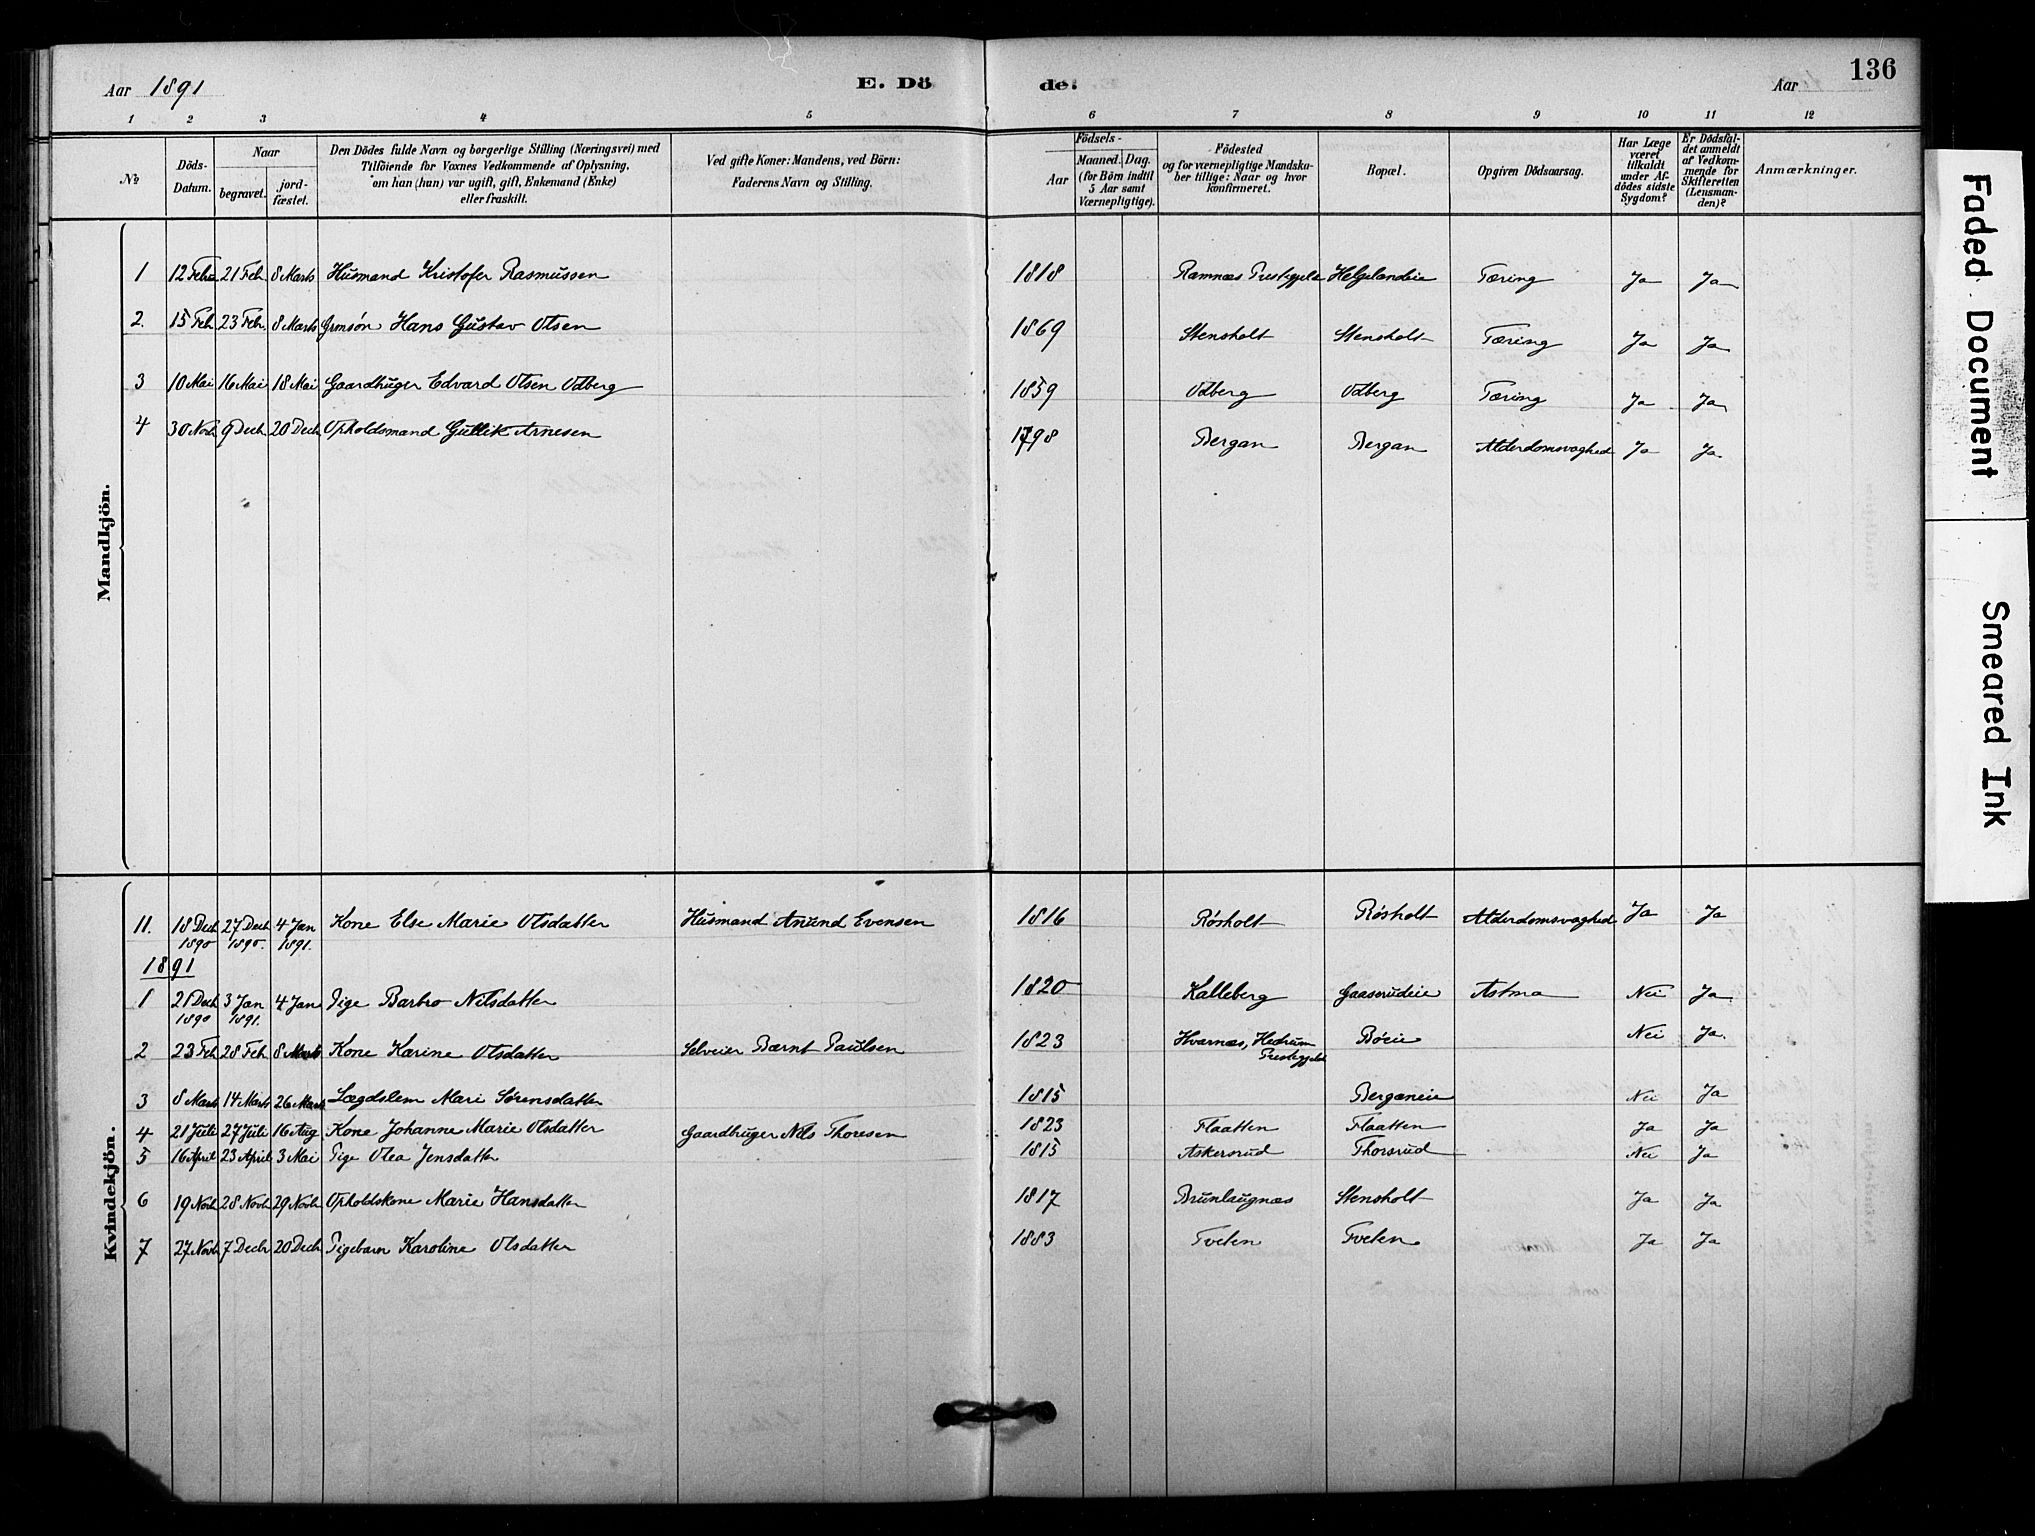 Aar 1891 E. Dö de. Aar 136
1 2 3 4 5 6 7 8 9 10 11 12
№
Döds-
Datum.
Naar
begravet.
jord-
fæstet.
Den Dödes fulde Navn og borgerlige Stilling (Næringsvei) med
Tilföiende for Voxnes Vedkommende af Oplysning,
om han (hun) var ugift, gift, Enkemand (Enke)
eller fraskilt.
Ved gifte Koner: Mandens, ved Börn:
Faderens Navn og Stilling.
Födsels-
Aar
Maaned. Dag.
(for Börn indtil
5 Aar samt
Værnepligtige).
Födested
og for værnepligtige Mandska-
ber tillige: Naar og hvor
konfirmeret.
Bopæl.
Opgiven Dödsaarsag.
Har Læge
været
tilkaldt
under Af-
dödes sidste
Sygdom?
Er Dödsfal-
det anmeldt
af Vedkom-
mende for
Skifteretten
(Lensman-
den)?
Anmærkninger.
Mandkjön.
1 12 Febr 21 Feb 8 Marts Husmand Kristofer Rasmussen 1818 Ramnæs Prestegjeld Helgelandeie Tæring Ja Ja
2. 15 Feb 23 Feb. 8 Marts Grmsøn Hans Gustav Olsen 1869 Stensholt Stensholt Tæring Ja Ja
3 10 Mai 16 Mai 18 Mai Gaardbruger Edvard Olsen Odberg 1859 Odberg Odberg Tæring Ja Ja
4 30 Novb 9 Decb 20 Decb Opholdsmand Gullik Arnesen 1798 Bergan Bergan Alderdomsvaghed Ja Ja
Kvindekjön.
11. 18 Dech 27 Dech 4 Jan Kone Else Marie Olsdatter Husmand Anund Evensen 1816 Røsholt Røsholt Alderdomsvaghed Ja Ja
1890 1890. 1891.
1891
1 21 Dech 3 Jan 4 Jan Pige Barbro Nilsdatter 1820 Kalleberg Gaaserudeie Astma Nei Ja
1890 1891.
2 23 Feb 28 Feb 8 Marts Kone Karine Olsdatter Selveier Bærnt Paulsen 1823 Hvarnæs, Hedrum Bøeie Nei Ja
Prestegjeld
3 8 Marts 14 Marts 26 Marts Lægdslem Mari Sørensdatter 1815 Berganeie Nei Ja
4 21 Juli 27 Juli 16 Aug Kone Johanne Marie Olsdatter Gaardbruger Nils Thoresen 1823 Flaatten Flaatten Ja Ja
5 16 April 23 April 3 Mai Pige Olea Jensdatter 1815 Askersrud Thorsrud Nei Ja
6 19 Novb 28 Novb 29 Novb Opholdskone Marie Hansdatter 1817 Brunlaugnæs Stensholt Ja Ja
7 27 Novb 7 Decbr 20 Decb Pigebarn Karoline Olsdatter 1883 Tveten Tveten Ja Ja
Faded Document
Smeared Ink